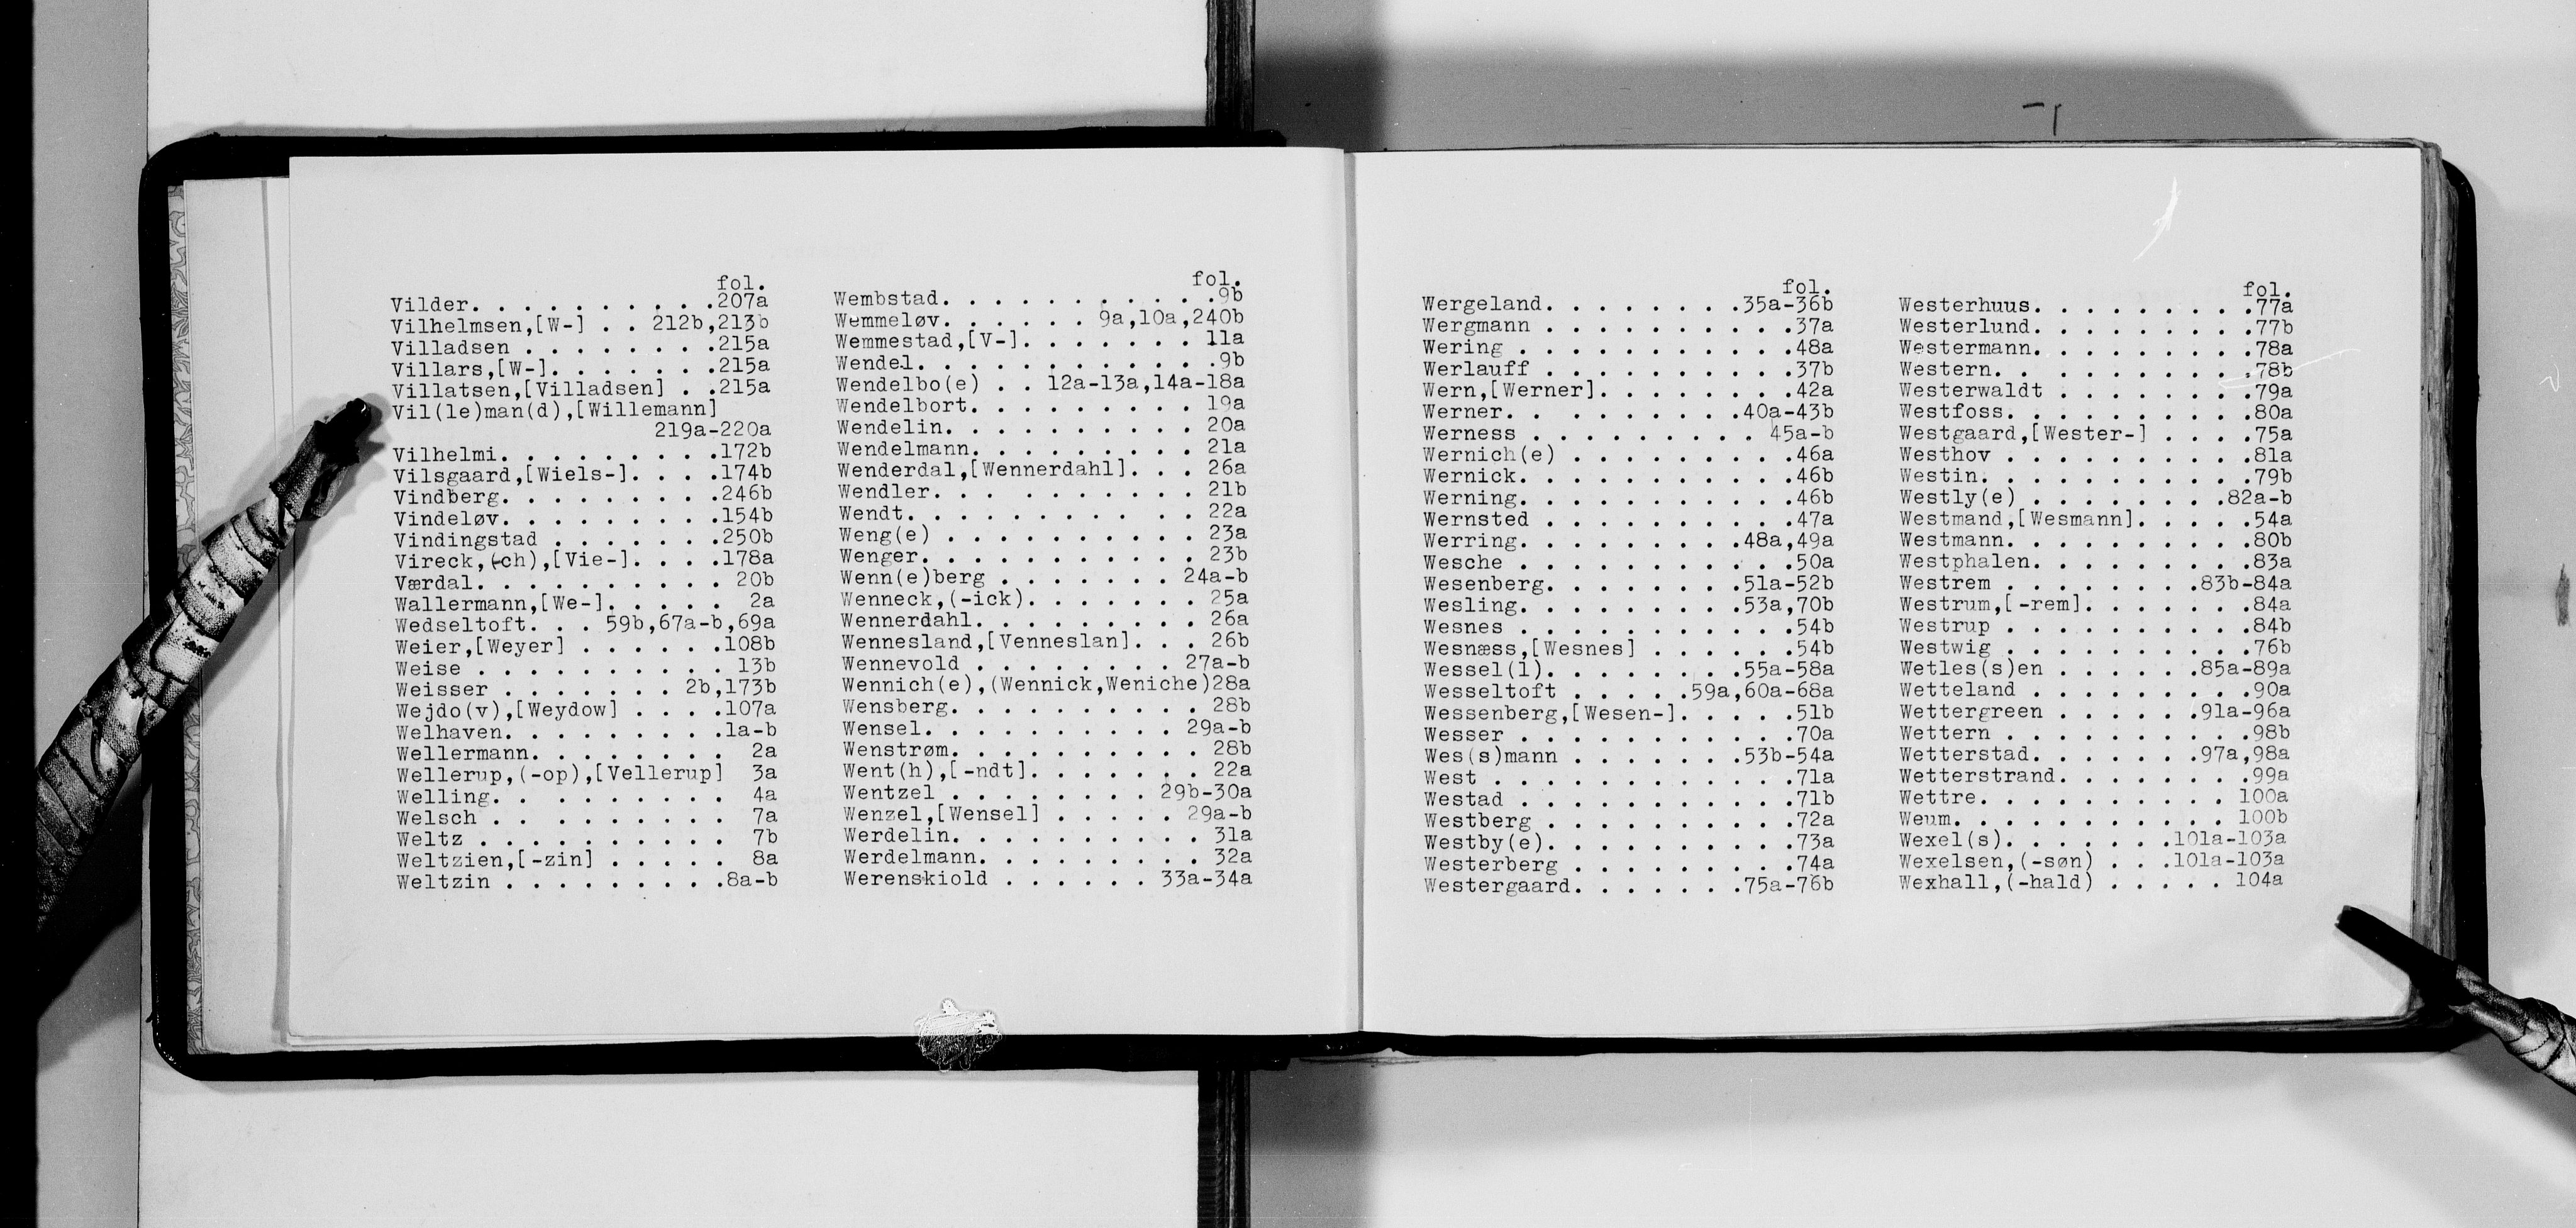 fol.
Vilder. . . . . . . . . .207a
Vilhelmsen,[W-] . . 212b,213b
Villadsen . . . . . . . .215a
Villars,[W-]. . . . . . .215a
Villatsen,[Villadsen] . .215a
Vil(le)man(d),[Willemann]
219a-220a
Vilhelmi. . . . . . . . .172b
Vilsgaard,[Wiels-]. . . .174b
Vindberg. . . . . . . . .246b
Vindeløv. . . . . . . . .154b
Vindingstad . . . . . . .250b
Vireck,(-ch),[Vie-]. . . .178a
Værdal. . . . . . . . . . 20b
Wallermann,[We-]. . . . . 2a
Wedseltoft. . . 59b,67a-b,69a
Weier,[Weyer] . . . . . .108b
Weise . . . . . . . . . . 13b
Weisser . . . . . . . 2b,173b
Wejdo(v),[Weydow] . . . .107a
Welhaven. . . . . . . . .1a-b
Wellermann. . . . . . . . 2a
Wellerup,(-op),[Vellerup] 3a
Welling. . . . . . . . . 4a
Welsch . . . . . . . . . 7a
Weltz . . . . . . . . . . 7b
Weltzien,[-zin] . . . . . 8a
Weltzin . . . . . . . . .8a-b
fol.
Wembstad. . . . . . . . . . .9b
Wemmeløv. . . . . . 9a,10a,240b
Wemmestad,[V-]. . . . . . . 11a
Wendel. . . . . . . . . . . .9b
Wendelbo(e) . . 12a-13a,14a-18a
Wendelbort. . . . . . . . . 19a
Wendelin. . . . . . . . . . 20a
Wendelmann. . . . . . . . . 21a
Wenderdal,[Wennerdahl]. . . 26a
Wendler. . . . . . . . . . 21b
Wendt. . . . . . . . . . . 22a
Weng(e) . . . . . . . . . . 23a
Wenger. . . . . . . . . . . 23b
Wenn(e)berg . . . . . . . 24a-b
Wenneck,(-ick). . . . . . . 25a
Wennerdahl. . . . . . . . . 26a
Wennesland,[Venneslan]. . . 26b
Wennevold . . . . . . . . 27a-b
Wennich(e),(Wennick,Weniche)28a
Wensberg. . . . . . . . . . 28b
Wensel. . . . . . . . . . 29a-b
Wenstrøm. . . . . . . . . . 28b
Went(h),[-ndt]. . . . . . . 22a
Wentzel . . . . . . . . 29b-30a
Wenzel,[Wensel] . . . . . 29a-b
Werdelin. . . . . . . . . . 31a
Werdelmann. . . . . . . . . 32a
Werenskiold . . . . . . 33a-34a
fol.
Wergeland. . . . . . . .35a-36b
Wergmann . . . . . . . . . .37a
Wering . . . . . . . . . . .48a
Werlauff . . . . . . . . . .37b
Wern,[Werner]. . . . . . . .42a
Werner. . . . . . . . . .40a-43b
Werness . . . . . . . . . 45a-b
Wernich(e) . . . . . . . . .46a
Wernick. . . . . . . . . . .46b
Werning. . . . . . . . . . .46b
Wernsted . . . . . . . . . .47a
Werring. . . . . . . . .48a,49a
Wesche . . . . . . . . . . .50a
Wesenberg. . . . . . . .51a-52b
Wesling. . . . . . . . .53a,70b
Wesnes . . . . . . . . . . .54b
Wesnæss,[Wesnes] . . . . . .54b
Wessel(l). . . . . . . .55a-58a
Wesseltoft . . . . .59a,60a-68a
Wessenberg,[Wesen-]. . . . .51b
Wesser . . . . . . . . . . .70a
Wes(s)mann . . . . . . .53b-54a
West . . . . . . . . . . . .71a
Westad . . . . . . . . . . .71b
Westberg . . . . . . . . . .72a
Westby(e). . . . . . . . . .73a
Westerberg . . . . . . . . .74a
Westergaard. . . . . . .75a-76b
fol.
Westerhuus. . . . . . . . .77a
Westerlund. . . . . . . . .77b
Westermann. . . . . . . . .78a
Western. . . . . . . . . . .78b
Westerwaldt . . . . . . . .79a
Westfoss. . . . . . . . . .80a
Westgaard,[Wester-] . . . .75a
Westhov . . . . . . . . . .81a
Westin. . . . . . . . . . .79b
Westly(e) . . . . . . . .82a-b
Westmand,[Wesmann]. . . . .54a
Westmann. . . . . . . . . .80b
Westphalen. . . . . . . . .83a
Westrem . . . . . . . .83b-84a
Westrum,[-rem]. . . . . . .84a
Westrup . . . . . . . . . .84b
Westwig . . . . . . . . . .76b
Wetles(s)en . . . . . .85a-89a
Wetteland . . . . . . . . .90a
Wettergreen . . . . . .91a-96a
Wettern . . . . . . . . . .98b
Wetterstad. . . . . . .97a,98a
Wetterstrand. . . . . . . .99a
Wettre. . . . . . . . . . 100a
Weum. . . . . . . . . . . 100b
Wexel(s). . . . . . .101a-103a
Wexelsen,(-søn) . . .101a-103a
Wexhall,(-hald) . . . . . 104a